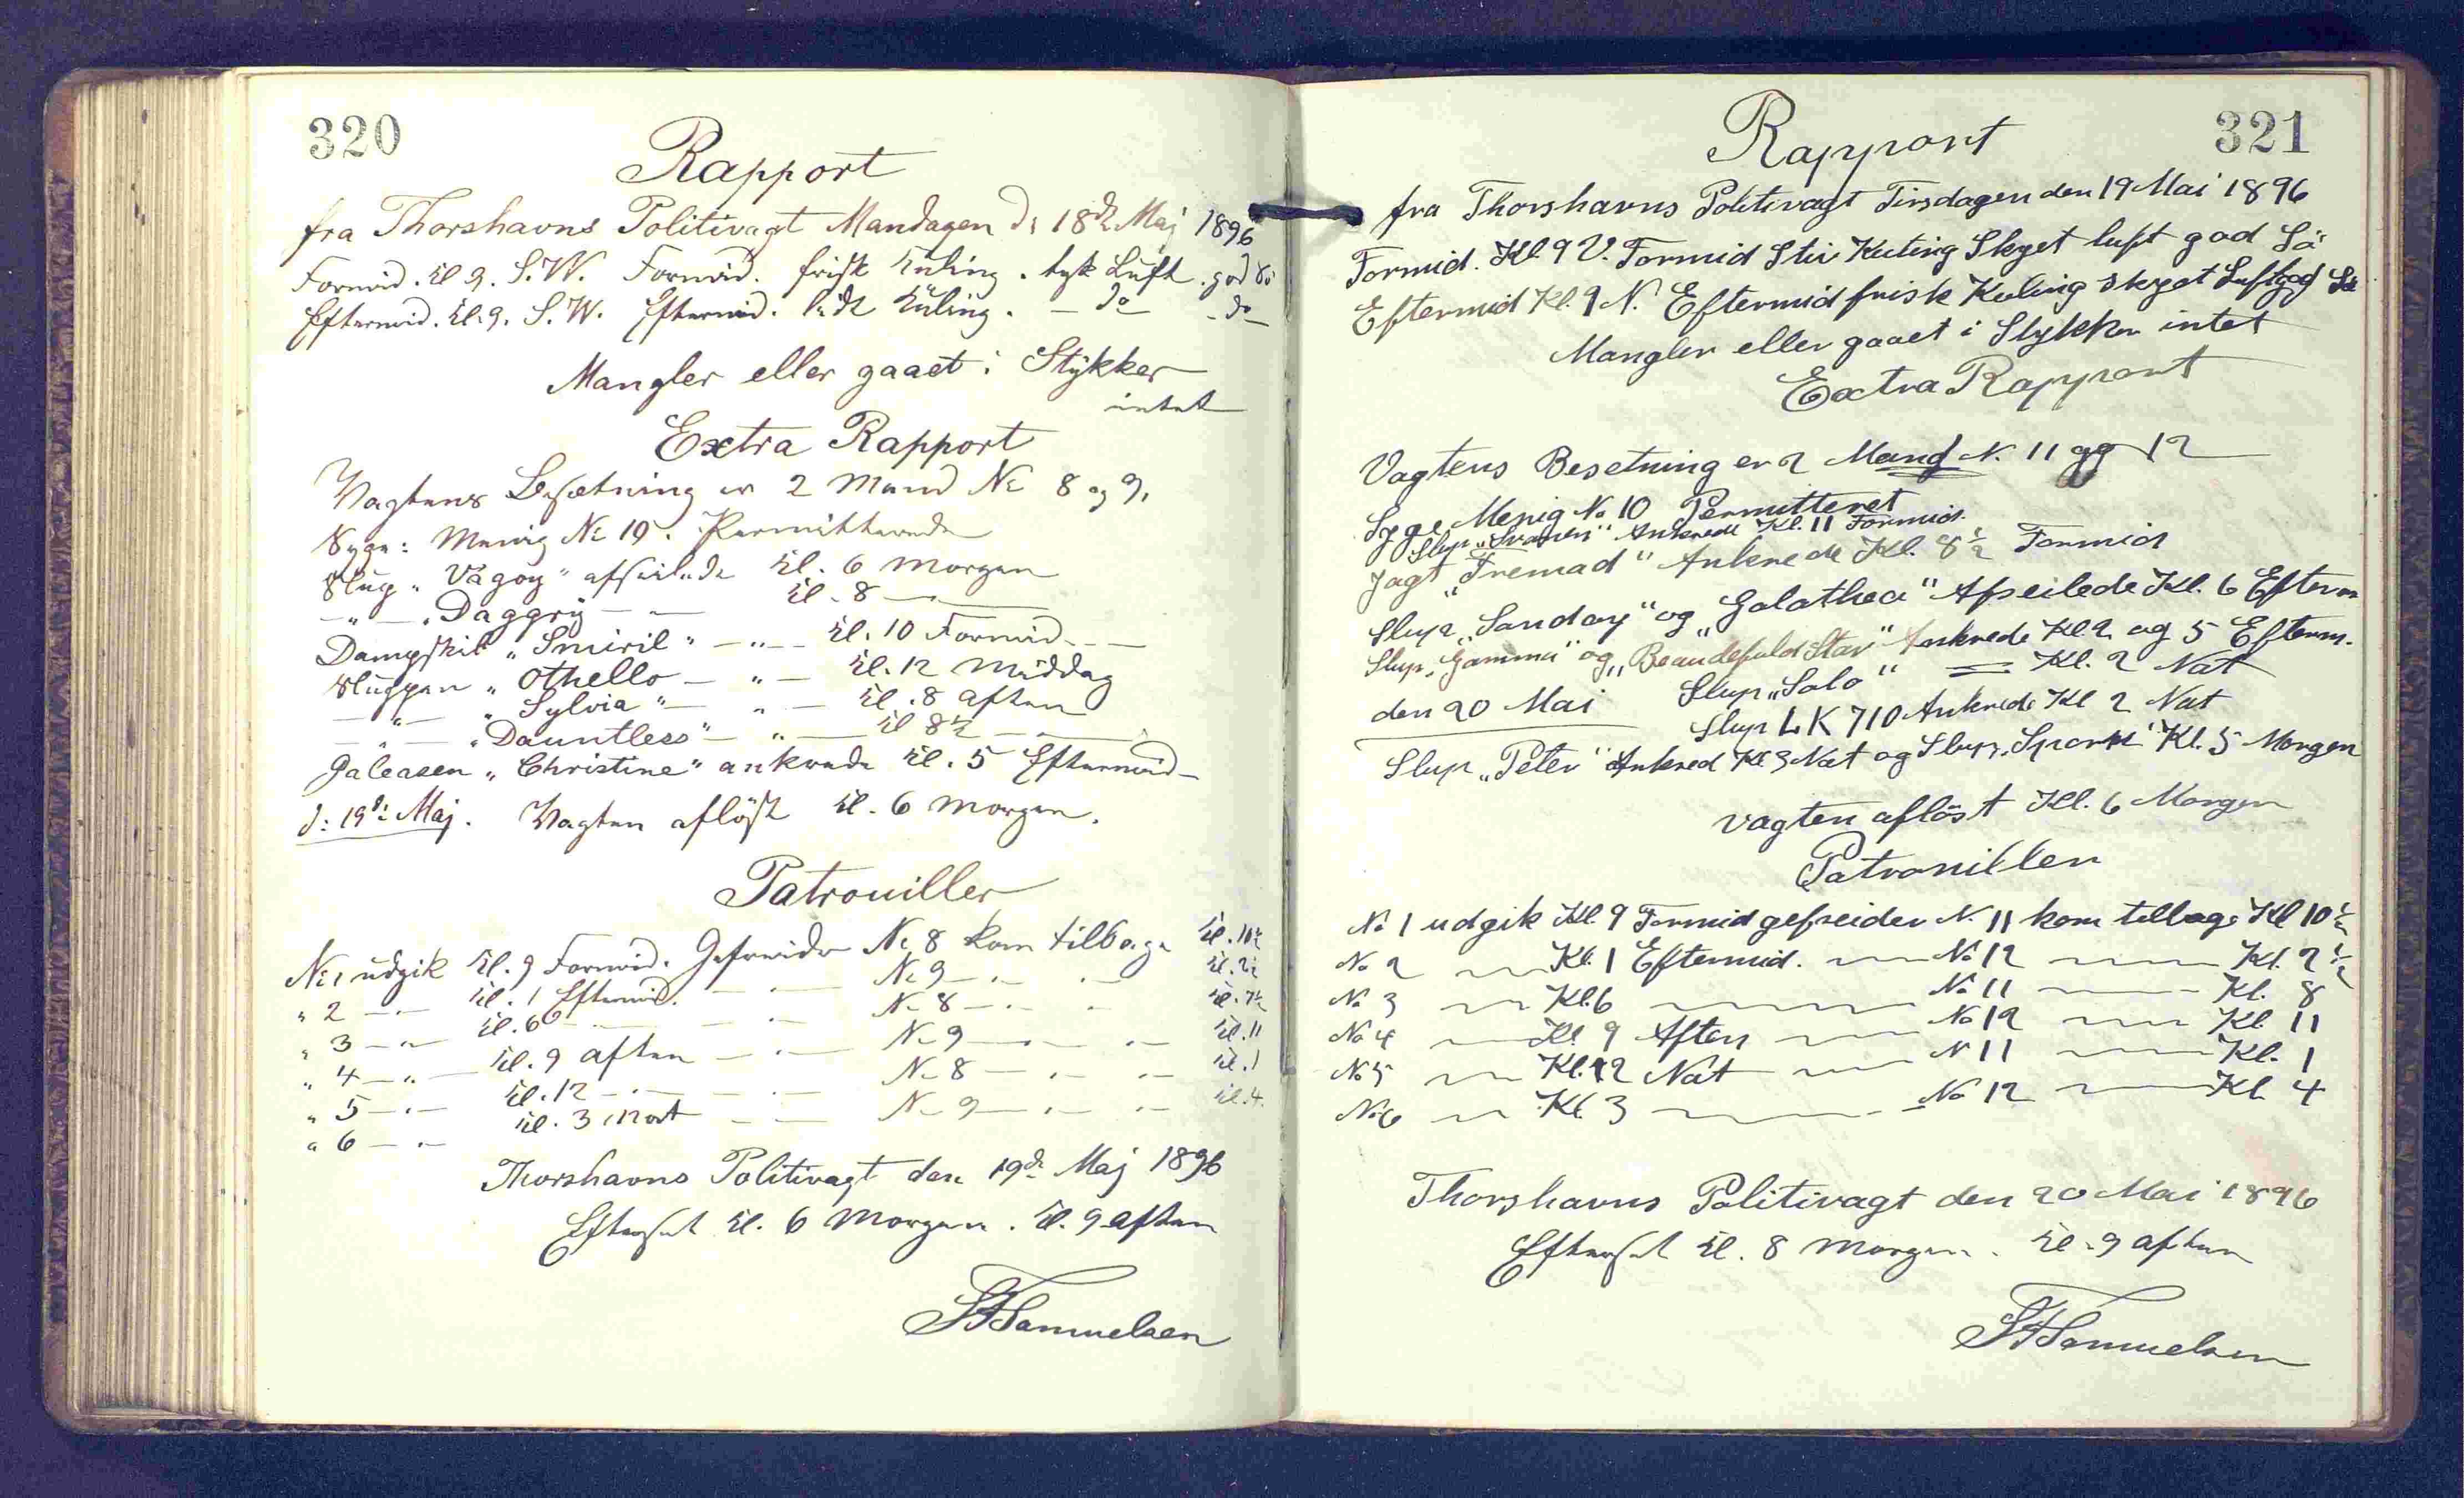 320
Rapport
fra Thorshavns Politivagt Mandagen d: 18de Maj 1896
Formid. Kl 9. S.W. Formid. frisk Kuling. tyk Luft. god Sö
Eftermid. Kl. 9. S.W. Eftermid. lidt Kuling. — do — do
Mangler eller gaaet i Stykker
intet
Extra Rapport
Vagtens Besætning er 2 Mand No 8 og 9.
Syge: Menig No 10. Permitterede
Slup „Vagoy" afseilede Kl. 6 Morgen
— " — „Daggry — " — Kl. 8 — " —
Dampskib „Smiril" — " — Kl. 10 Formid. —
Sluppen „Othello — " — Kl. 12 Middag
— " — „Sylvia" — " — Kl. 8 Aften
— " — „Dauntless" — " — Kl 8½ — " —
Galeasen „Christine" ankrede Kl. 5 Eftermid —
d: 19de Maj. Vagten aflöst Kl. 6 Morgen.
Patrouiller
No 1 udgik Kl. 9 Formid. Gefreider No 8 kom tilbage Kl. 10½
" 2 — " — Kl. 1 Eftermid. — " — No 9 — " — " — Kl. 2½
" 3 — " — Kl. 6 — " — — " — No 8 — " — " — Kl. 7½
" 4 — " — Kl. 9 Aften — " — No 9 — " — " — Kl. 11
" 5 — " — Kl. 12 — " — — " — No 8 — " — " — Kl. 1
" 6 — " — Kl. 3 Nat — " — No 9 — " — " — Kl. 4.
Thorshavns Politivagt den 19de Maj 1896
Efterset Kl. 6 Morgen. Kl. 9 Aften
Samuelsen
321
Rapport
fra Thorshavns Politivagt Tirsdagen den 19 Mai 1896
Formid. Kl. 9 V. Formid Stiv Kuling Skyet luft god Sö
Eftermid Kl. 9 N. Eftermid frisk Kuling skyet Luft god Sö
Mangler eller gaaet i Stykker intet
Extra Rapport
Vagtens Besetning er 2 Mand N. 11 og 12
Syge Menig No 10 Permitteret
Slup „Svanen" Ankrede Kl. 11 Formid.
Jagt „Fremad" Ankrede Kl. 8½ Formid
Slup „Sandoy" og „Galathea" Afseilede Kl. 6 Efterm
Slup „Gamma" og „Beaudefuld Star" Ankrede Kl 2 og 5 Efterm.
den 20 Mai Slup „Solo" = Kl. 2 Nat
Slup LK 710 Ankrede Kl 2 Nat
Slup „Peter" Ankred Kl 3 Nat og Slup „Spark" Kl. 5 Morgen
vagten aflöst Kl. 6 Morgen
Patrouiller
No 1 udgik Kl. 9 Formid gefreider N. 11 kom tilbage Kl 10½
No 2 — Kl. 1 Eftermid. — No 12 — Kl. 2½
No 3 — Kl. 6 — No 11 — Kl. 8
No 4 — Kl. 9 Aften — No 12 — Kl. 11
No 5 — Kl. 12 Nat — N 11 — Kl. 1
No 6 — Kl. 3 — No 12 — Kl 4
Thorshavns Politivagt den 20 Mai 1896
Efterset Kl. 8 Morgen. Kl. 9 Aften
Samuelsen